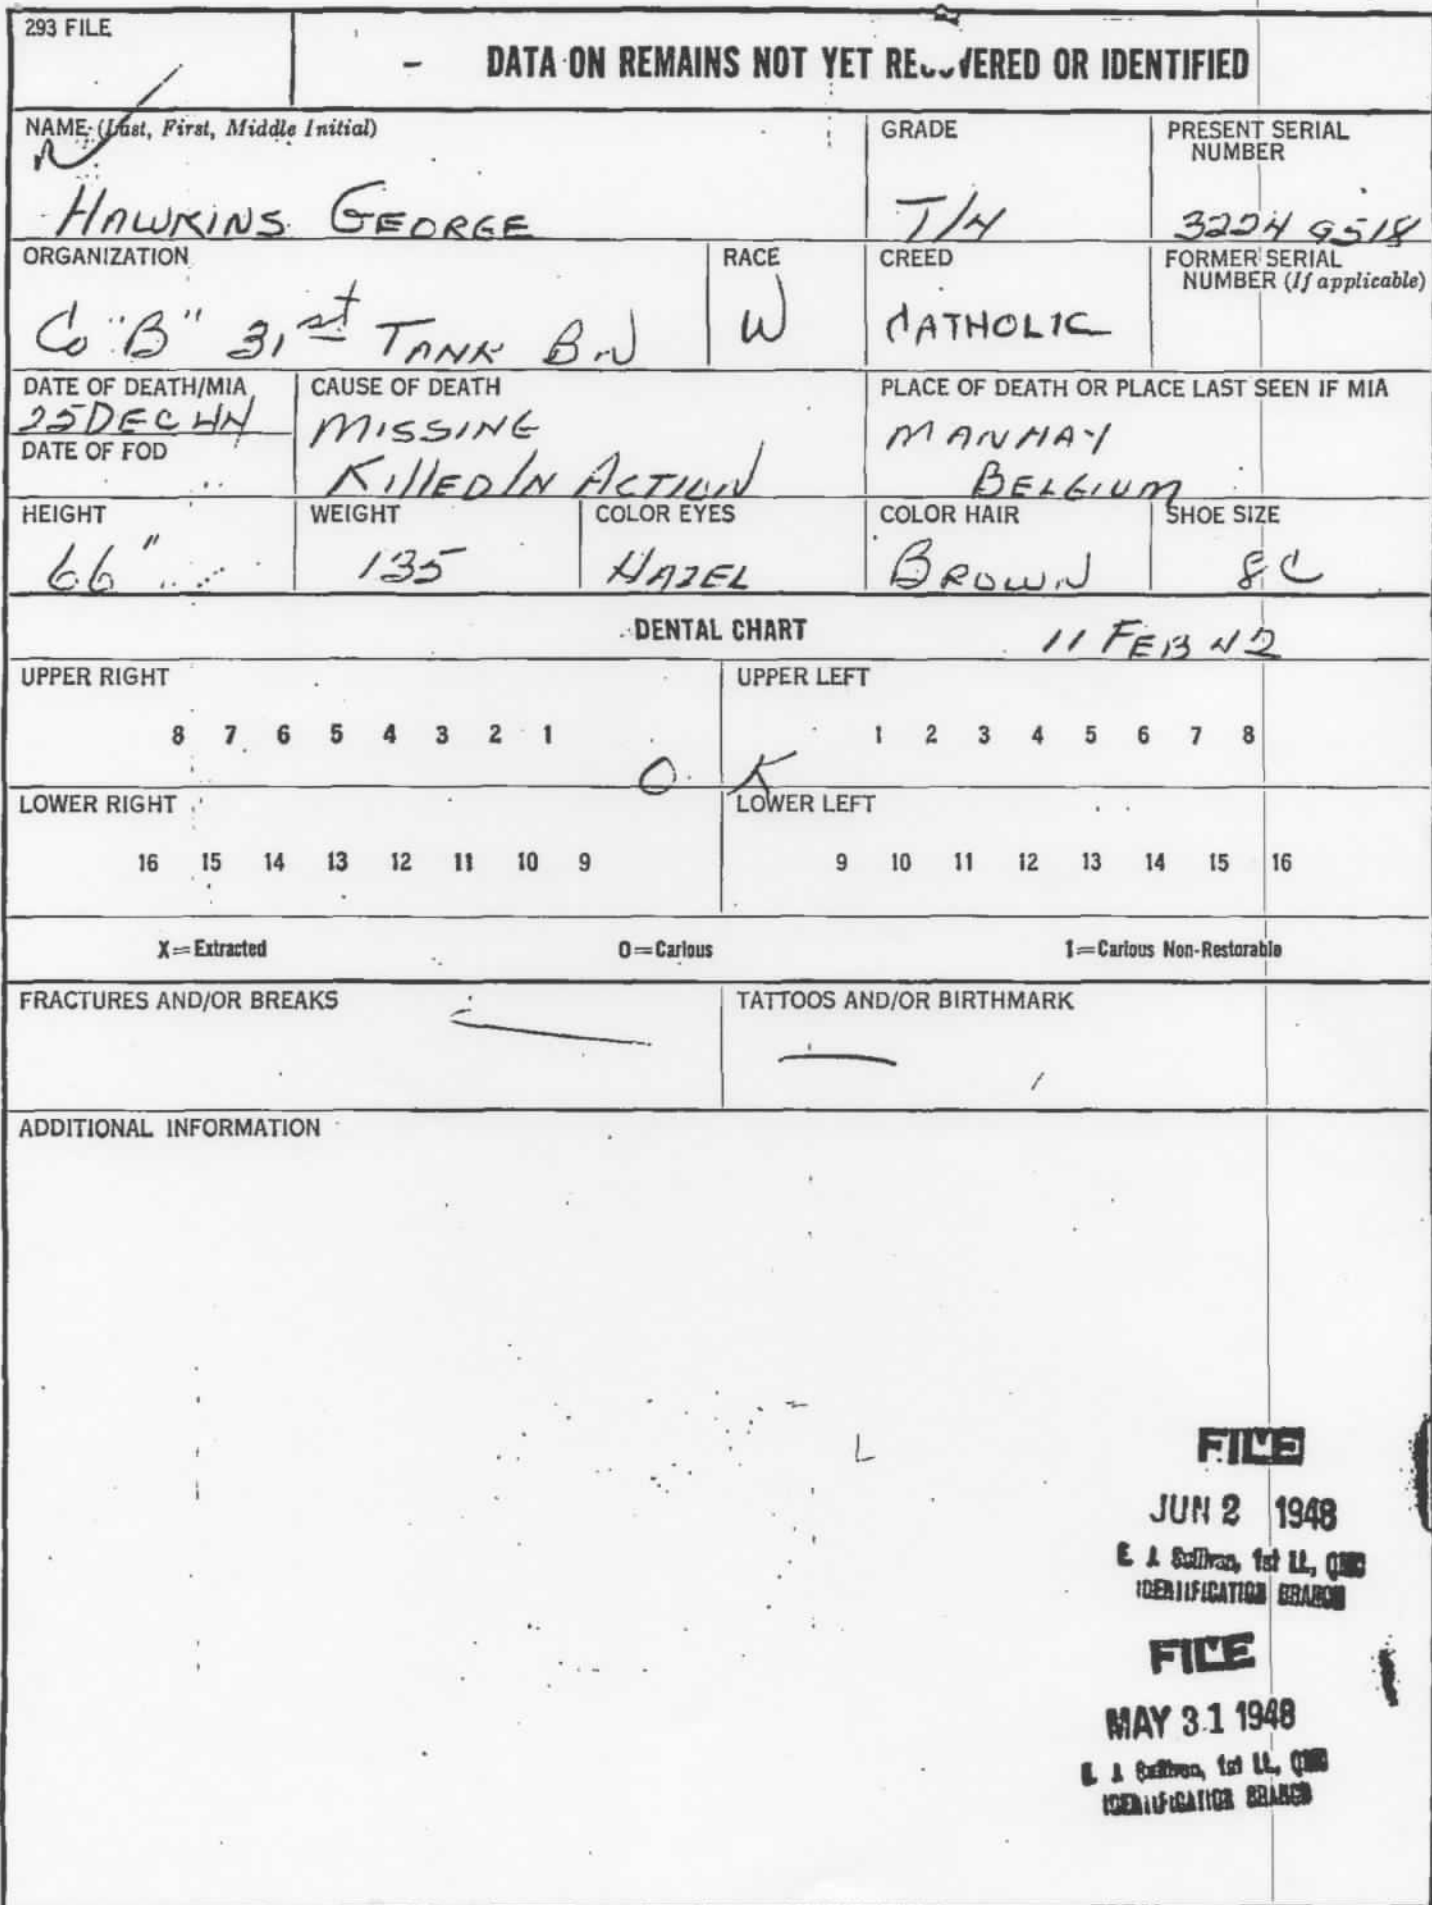 293 FILE
- DATA ON REMAINS NOT YET RECOVERED OR IDENTIFIED
NAME (Last, First, Middle Initial)
HAWKINS GEORGE
GRADE
T/4
PRESENT SERIAL
NUMBER
3224 9518
ORGANIZATION
Co "B" 31st TANK BN
RACE
W
CREED
CATHOLIC
FORMER SERIAL
NUMBER (If applicable)
DATE OF DEATH/MIA
25 DEC 44
DATE OF FOD
CAUSE OF DEATH
MISSING
KIllED IN ACTION
PLACE OF DEATH OR PLACE LAST SEEN IF MIA
MANHAY
BELGIUM
HEIGHT
66"
WEIGHT
135
COLOR EYES
HAZEL
COLOR HAIR
BROWN
SHOE SIZE
8C
DENTAL CHART 11 FEB 42
UPPER RIGHT
8 7 6 5 4 3 2 1
UPPER LEFT
1 2 3 4 5 6 7 8
O K
LOWER RIGHT
16 15 14 13 12 11 10 9
LOWER LEFT
9 10 11 12 13 14 15 16
X=Extracted O=Carious 1=Carious Non-Restorable
FRACTURES AND/OR BREAKS
TATTOOS AND/OR BIRTHMARK
ADDITIONAL INFORMATION
FILE
JUN 2 1948
E. J. Sullivan, 1st Lt., QMC
IDENTIFICATION BRANCH
FILE
MAY 31 1948
E. J. Sullivan, 1st Lt., QMC
IDENTIFICATION BRANCH